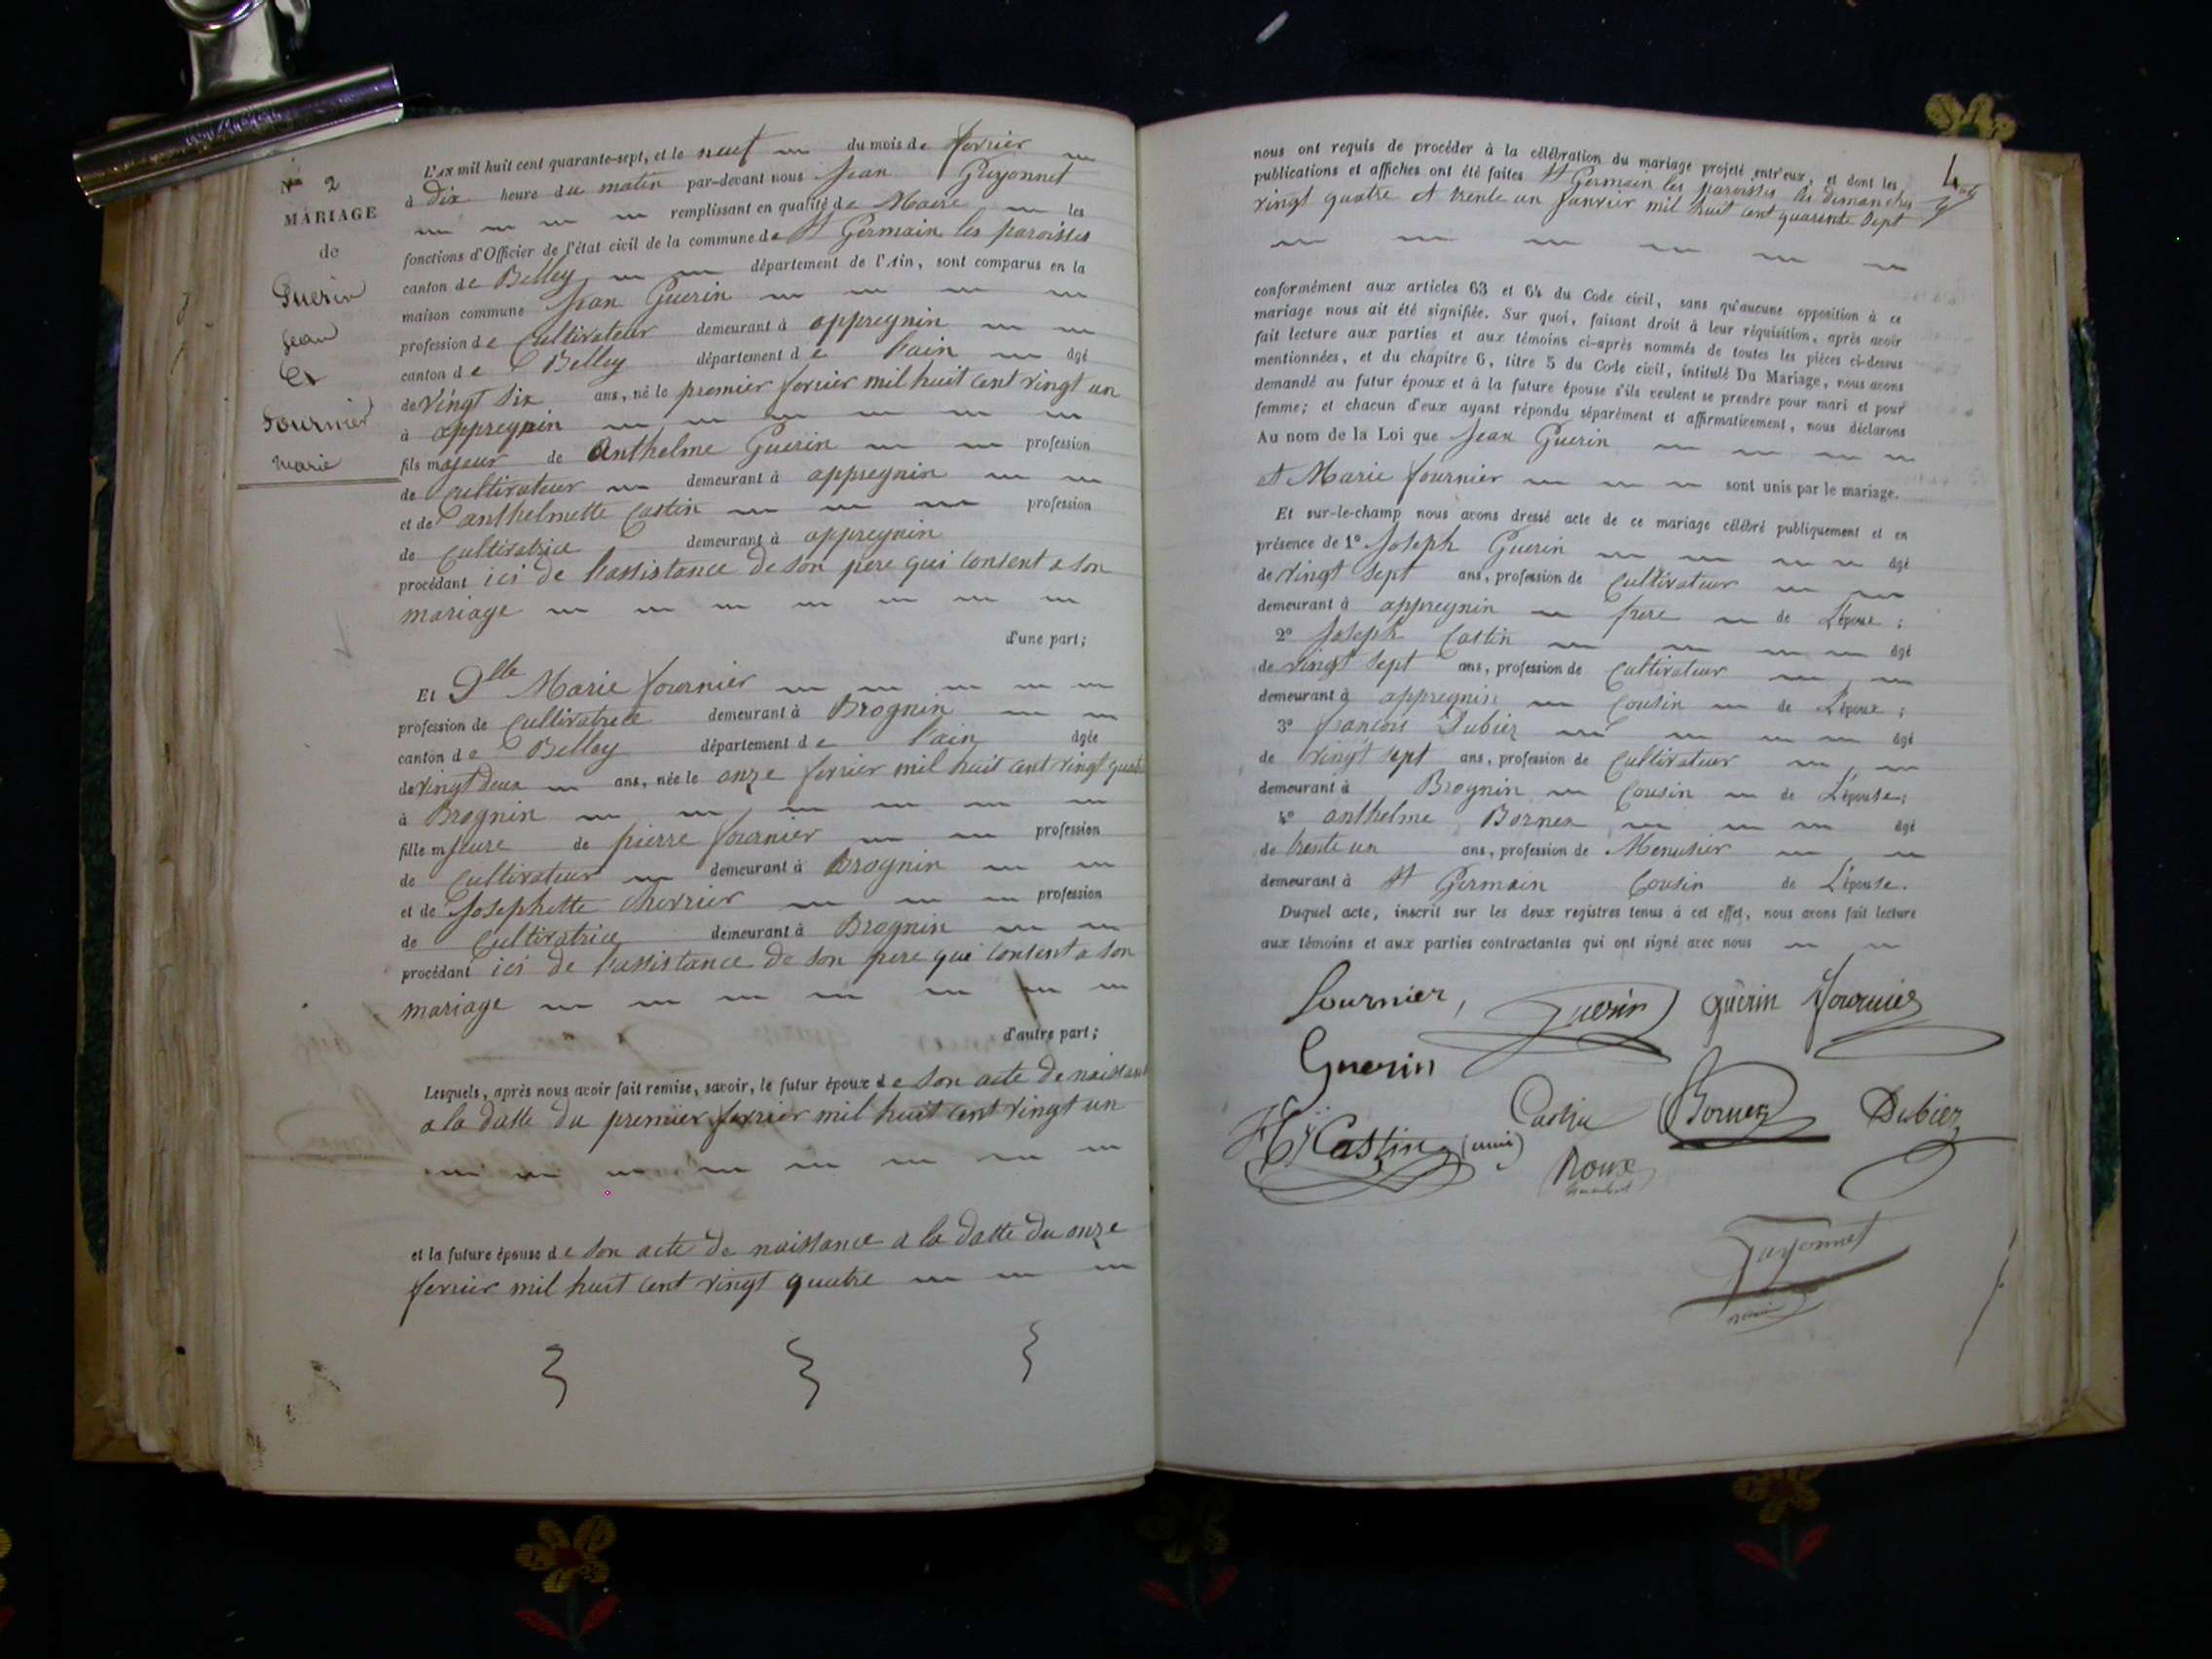 N° 2
MARIAGE
de
Guerin
Jean
Et
Fournier
Marie
L'AN mil huit cent quarante-sept, et le neuf du mois de fevrier
à dix heure du matin par-devant nous Jean Guyonnet
remplissant en qualité de Maire les
fonctions d'Officier de l'état civil de la commune de St Germain les paroisses
canton de Belley département de l'Ain, sont comparus en la
maison commune Jean Guerin
profession de Cultivateur demeurant à appregnin
canton de Belley département de l'ain âgé
de vingt six ans, né le premier fevrier mil huit cent vingt un
à appregnin
fils majeur de Anthelme Guerin profession
de Cultivateur demeurant à appregnin
et de anthelmette Castin profession
de Cultivatrice demeurant à appregnin
procédant ici de l'assistance de son pere qui consent a son
mariage
d'une part;
Et Dlle Marie fournier
profession de Cultivatrice demeurant à Brognin
canton de Belley département de l'ain âgée
de vingt deux ans, née le onze fevrier mil huit cent vingt quatre
à Brognin
fille mjeure de pierre fournier profession
de Cultivateur demeurant à Brognin
et de Josephette Chervier profession
de Cultivatrice demeurant à Brognin
procédant ici de l'assistance de son pere qui consent a son
mariage
d'autre part;
Lesquels, après nous avoir fait remise, savoir, le futur époux de son acte de naissance
a la datte du premier fevrier mil huit cent vingt un
et la future épouse de son acte de naissance a la datte du onze
fevrier mil huit cent vingt quatre
4
nous ont requis de procéder à la célébration du mariage projeté entr'eux, et dont les
publications et affiches ont été faites St Germain les paroisses les dimanches
vingt quatre et trente un Janvier mil huit cent quarente sept
conformément aux articles 63 et 64 du Code civil, sans qu'aucune opposition à ce
mariage nous ait été signifiée. Sur quoi, faisant droit à leur réquisition, après avoir
fait lecture aux parties et aux témoins ci-après nommés de toutes les pièces ci-dessus
mentionnées, et du chapitre 6, titre 5 du Code civil, intitulé Du Mariage, nous avons
demandé au futur époux et à la future épouse s'ils veulent se prendre pour mari et pour
femme; et chacun d'eux ayant répondu séparément et affirmativement, nous déclarons
Au nom de la Loi que Jean Guerin
et Marie fournier sont unis par le mariage.
Et sur-le-champ nous avons dressé acte de ce mariage célébré publiquement et en
présence de 1° Joseph Guerin âgé
de vingt sept ans, profession de Cultivateur
demeurant à appregnin frere de L'époux;
2° Joseph Castin âgé
de vingt sept ans, profession de Cultivateur
demeurant à appregnin Cousin de L'époux;
3° francois Dubiez âgé
de vingt sept ans, profession de Cultivateur
demeurant à Brognin Cousin de L'épouse;
4° anthelme Bornex âgé
de trente un ans, profession de Menusier
demeurant à St Germain Cousin de L'épouse.
Duquel acte, inscrit sur les deux registres tenus à cet effet, nous avons fait lecture
aux témoins et aux parties contractantes qui ont signé avec nous
fournier, Guerin guerin fournier
Guerin
Castin Bornex Dubiez
Castin (ami)
Roux
Guyonnet